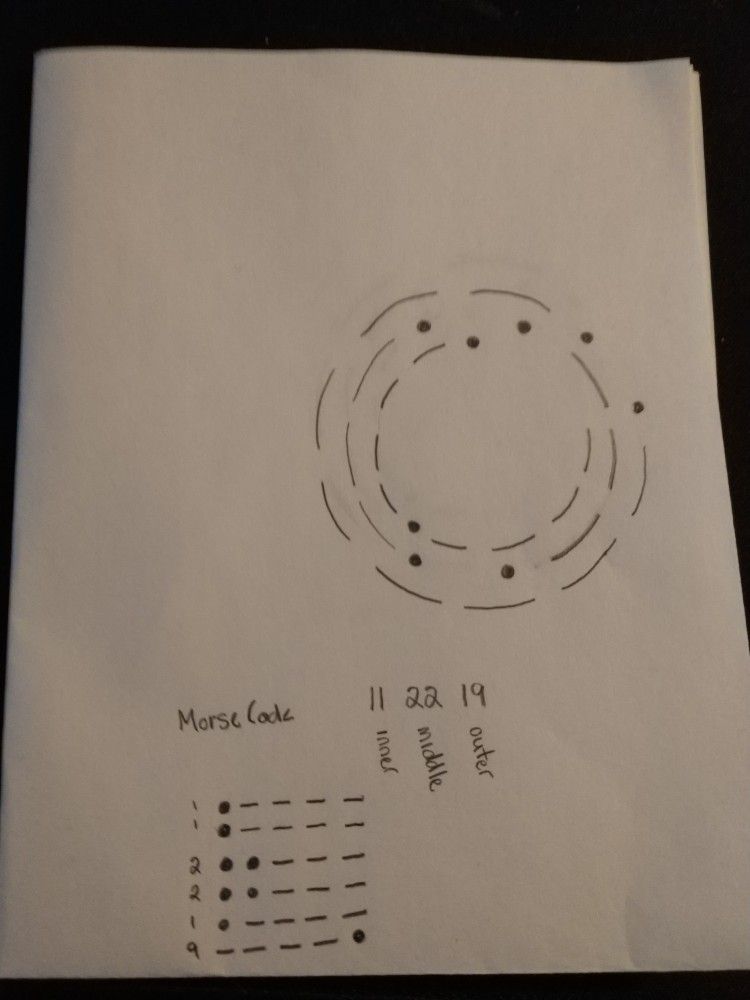 Morse Code 11 22 19
inner middle outer
1 • – – – –
1 • – – – –
2 • • – – –
2 • • – – –
1 • – – – –
9 – – – – •